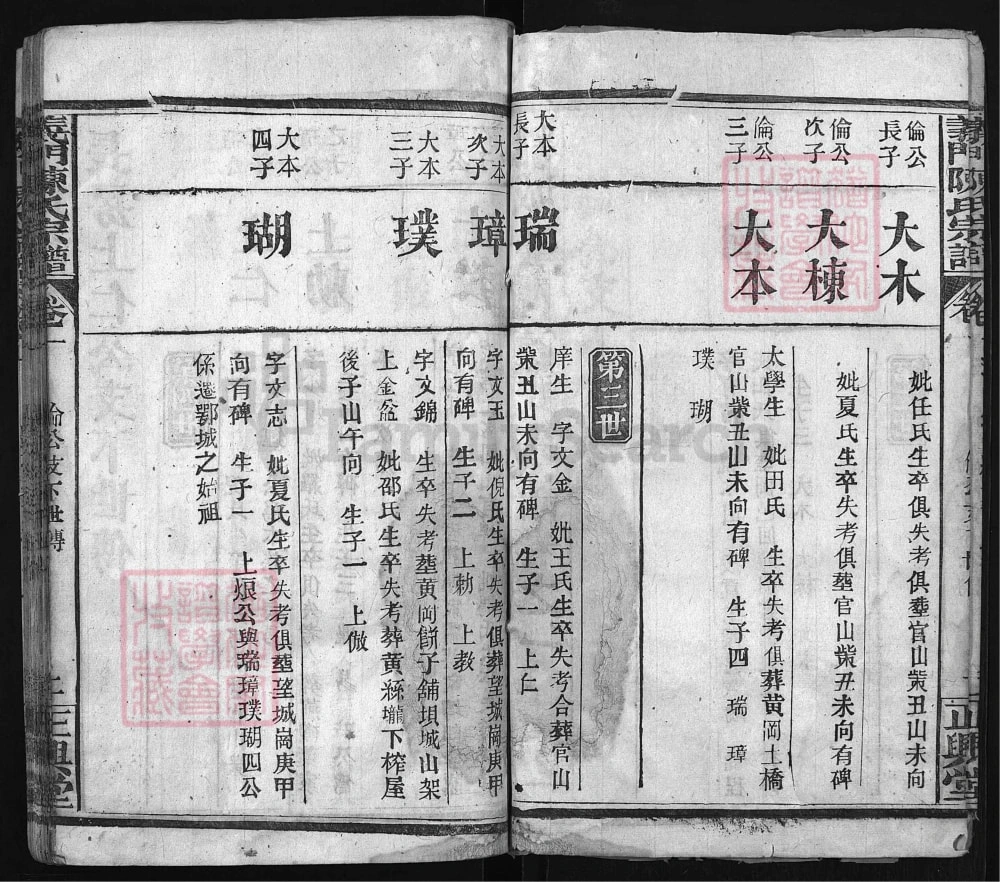 義門陳氏宗譜
卷一
正興堂
倫公
長子
大木
妣任氏生卒俱失考俱塟官山喍丑山未向
倫公
次子
大棟
妣夏氏生卒失考俱塟官山喍丑未向有碑
倫公
三子
大本
太學生 妣田氏 生卒失考俱葬黄岡土橋
官山喍丑山未向有碑 生子四 瑞 璋
璞 瑚
第三世
大本
長子
瑞
庠生 字文金 妣王氏生卒失考合葬官山
喍丑山未向有碑 生子一 上仁
大本
次子
璋
字文玉 妣倪氏生卒失考俱葬望城崗庚甲
向有碑 生子二 上勅 上教
大本
三子
璞
字文錦 生卒失考塟黄岡餅子舖垻城山架
上金盆 妣邵氏生卒失考葬黄絲壠下榨屋
後子山午向 生子一 上倣
大本
四子
瑚
字文志 妣夏氏生卒失考俱塟望城崗庚甲
向有碑 生子一 上烺公與瑞璋璞瑚四公
係遷鄂城之始祖
義門陳氏宗譜
卷一
倫公支下世傳
正興堂
FamilySearch